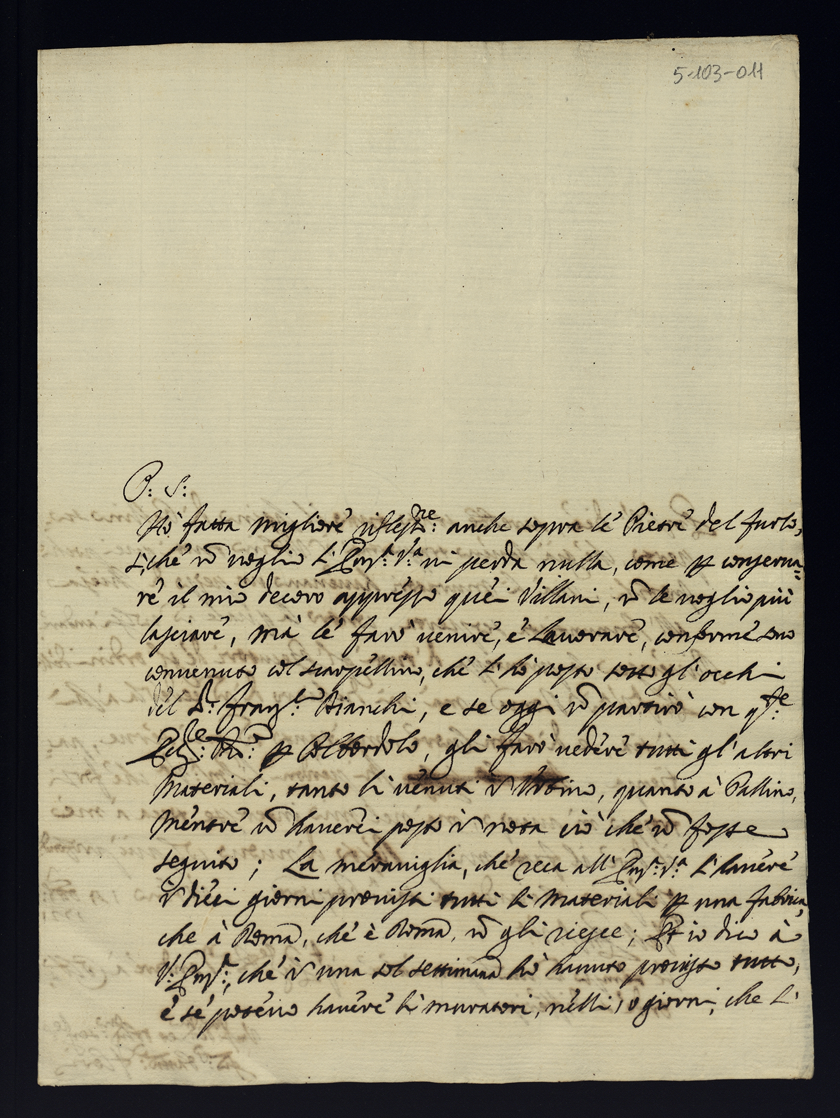 5-103-011
P: S:
Hò fatta migliore rifless:ne anche sopra le Pietre del furlo,
siche nō voglio Em:a V:a ni perda nulla, come p conserua=
re il mio decoro appresso quei Villani, nō le voglio più
lasciare, mà le farò uenire, è Lauorare, conforme sono
conuenuto col scarpellino, che li hò posto sotto gl'occhi
del Sr: Franc:o Bianchi, e se oggi nō partirò con
p Colbordolo, gli farò uedere tutti gl'altri
Materiali, tanto li uenuti in Urbino, quanto à Pallino,
Mentre nō hauerei posto in nota ciò che nō fosse
seguito; La merauiglia, che reca all'Em:a V:a l'hauere
in dieci giorni prouisti tutti li Materiali p una fabrica,
che à Roma, che è Roma, nō gli riesce; Et io dico à
V: Em:a, che in una sol settimana hò hauuto prouisto tutto,
è se poteuo hauere li muratori, nelli 10 giorni, che